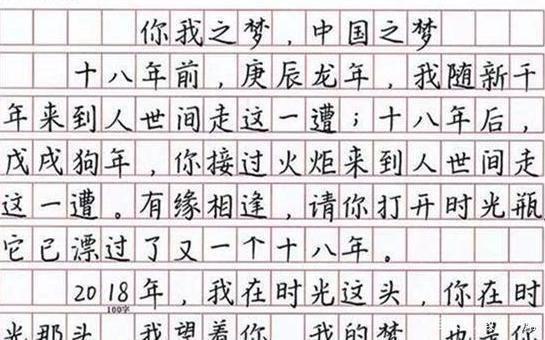 你我之梦，中国之梦
十八年前，庚辰龙年，我随新千
年来到人世间走这一遭；十八年后，
戊戌狗年，你接过火炬来到人世间走
这一遭。有缘相逢，请你打开时光瓶
它已漂过了又一个十八年。
2018年，我在时光这头，你在时
100字
光那头，我望着你，我的梦，也是你